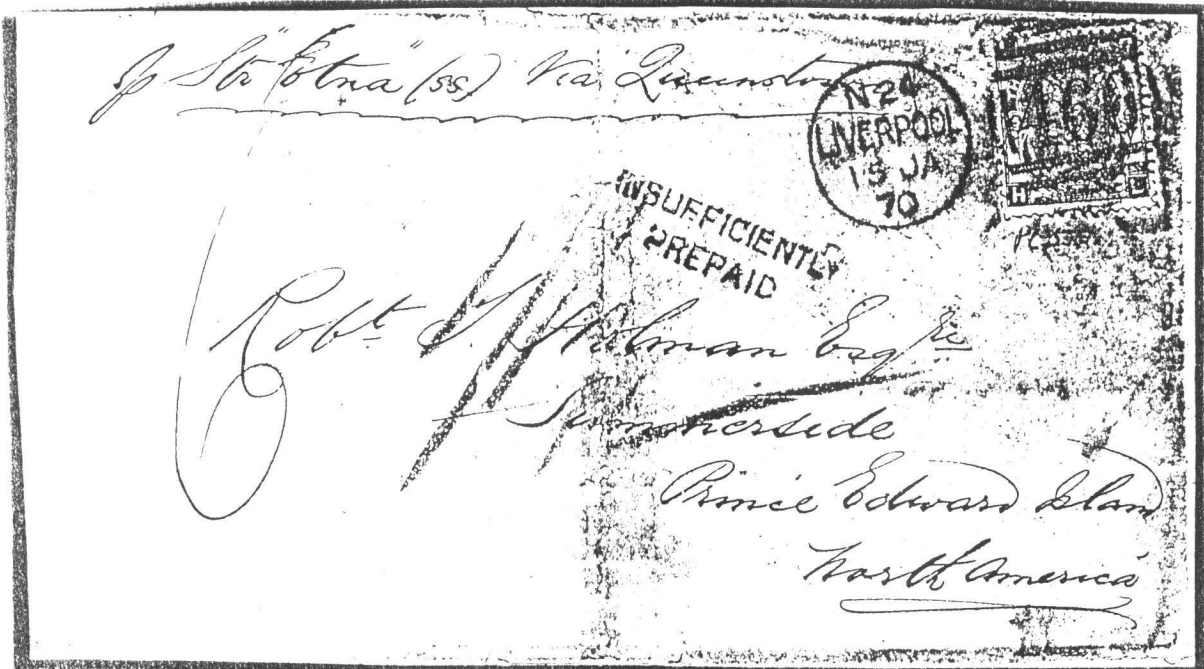 p Str "Etna" (ss) Via Queenstown
N 24
LIVERPOOL
15 JA
70
466
H
INSUFFICIENTLY
PREPAID
6
Robt T. Holman Esqre
Summerside
Prince Edward Island
North America